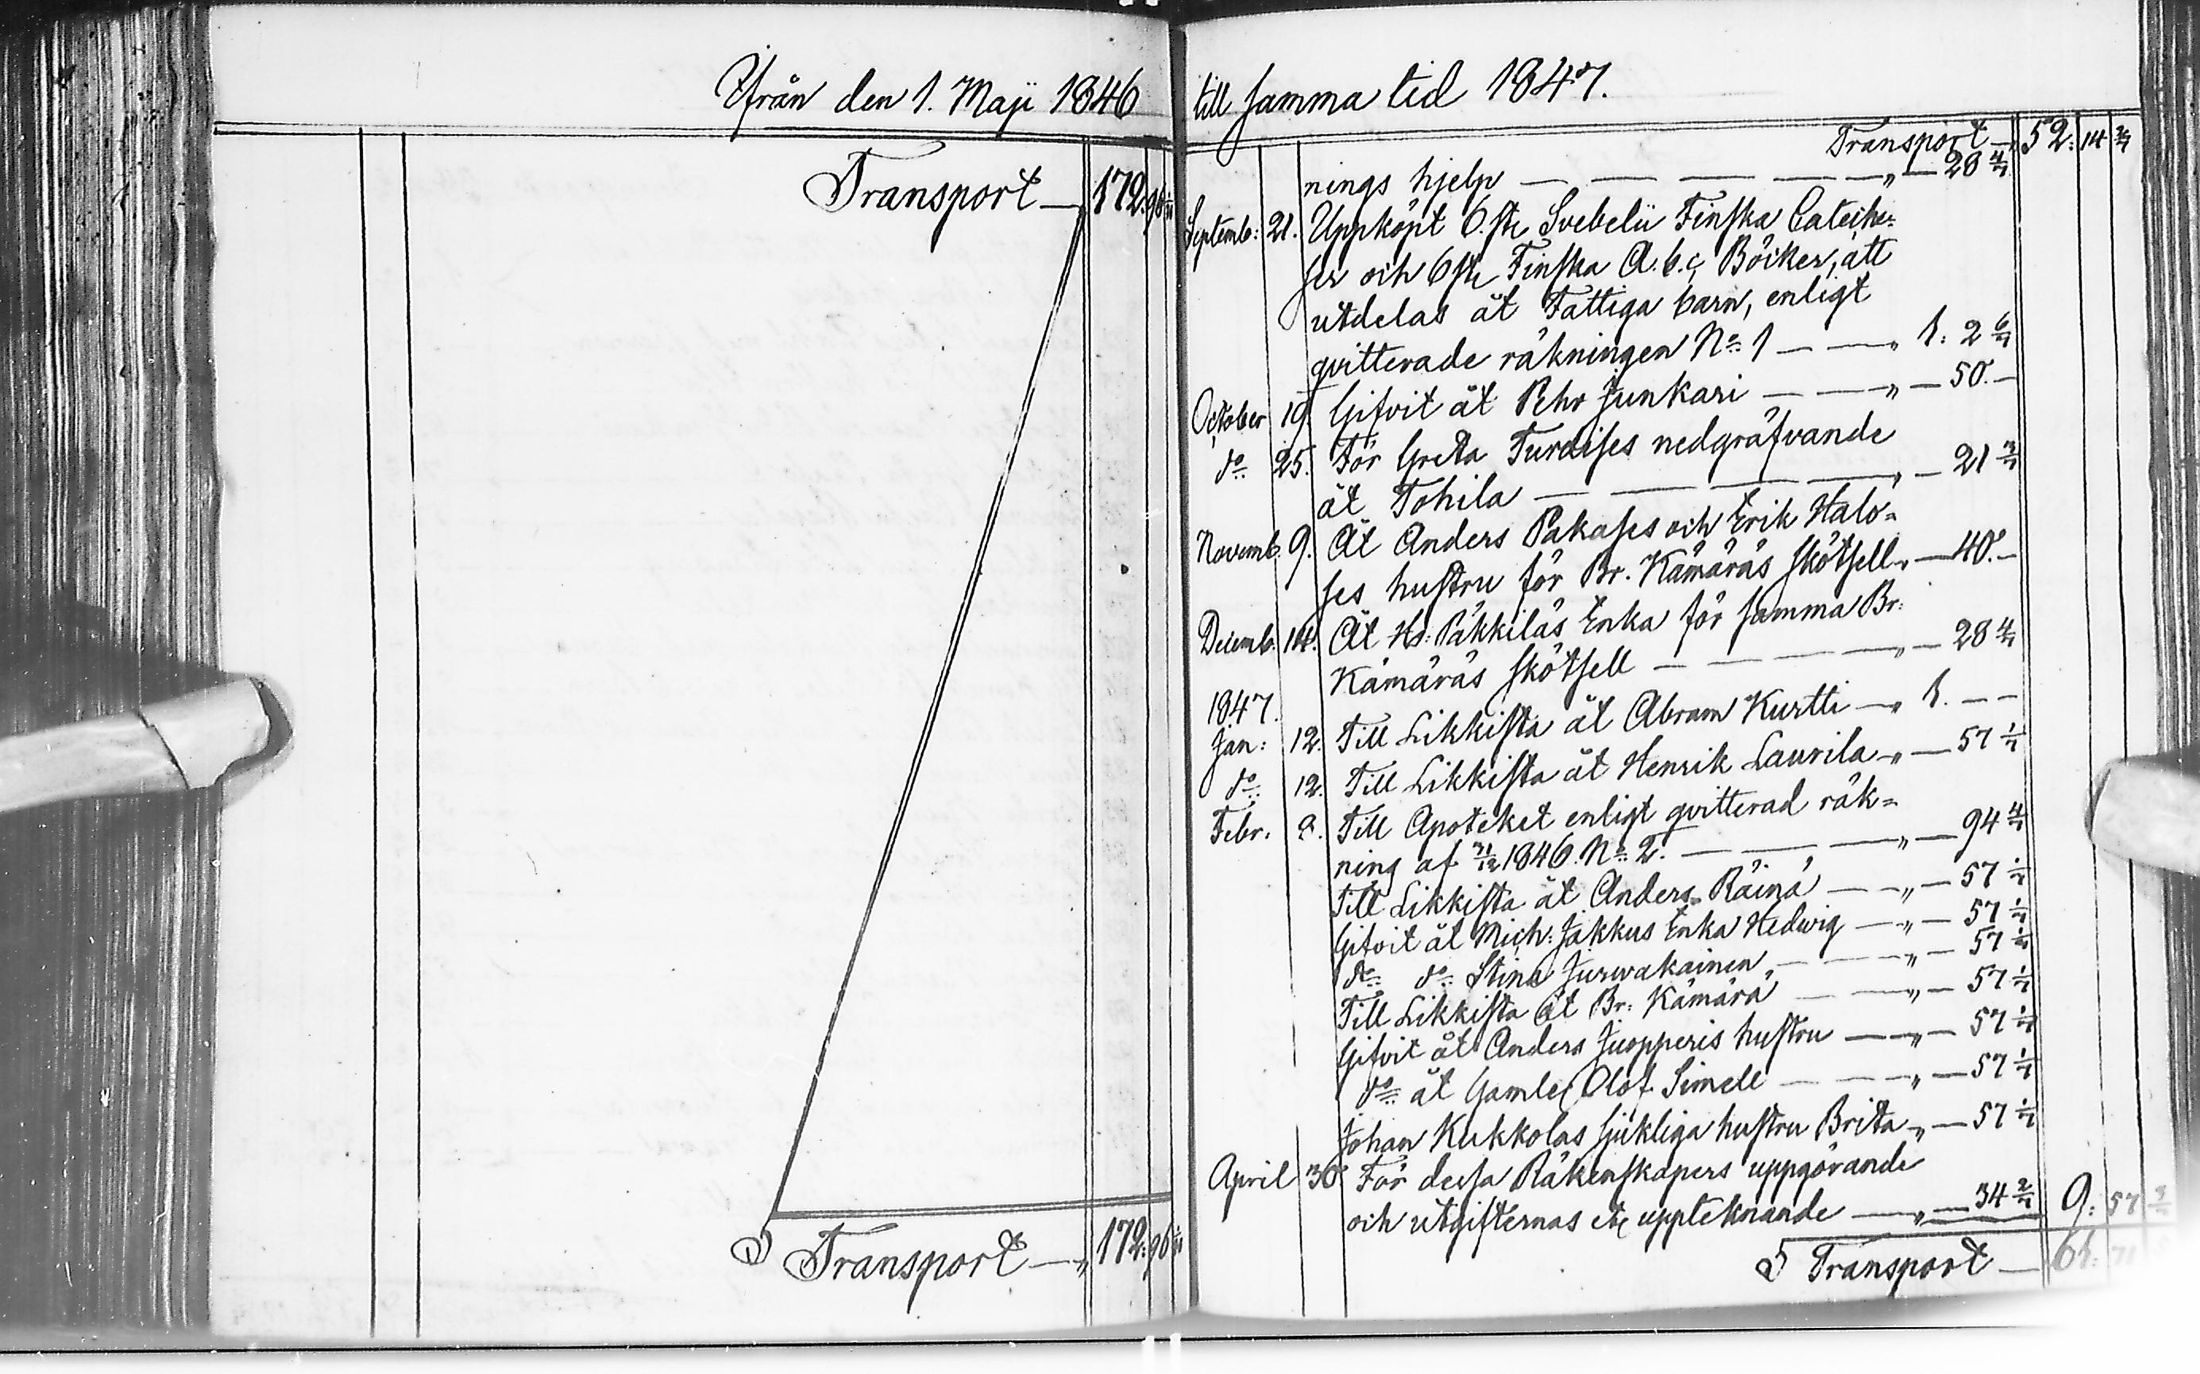 Ifrån den 1. Maji 1846
Transport — „ 172. 96
Transport — „ 172. 96
till samma tid 1847.
Transport — 52: 14 2/7
nings hjelp — — — — „ — 28 4/7
Septemb: 21. Uppköpt 6. st. Svebelii Finska Cateche-
ser och 6 st. Finska A.b.c. Böcker, att
utdelas åt Fattiga barn, enligt
qvitterade räkningen No 1 — — „ 1: 2 6/7
October 19. Gifvit åt Pehr Junkari — — „ — 50. —
do 25. För Greta Turdises nedgräfvande
åt Tohila — — — — „ — 21 3/7
Novemb. 9. Åt Anders Pakases och Erik Halo-
ses hustru för Br. Kämäräs skötsell „ — 40. —
Decemb. 14. Åt Hd: Päkkiläs Enka för samma Br:
Kämäräs skötsell — — — „ — 28 4/7
1847.
Jan: 12. Till Likkista åt Abram Kurtti — „ 1. — —
do 12. Till Likkista åt Henrik Laurila „ — 57 1/7
Febr. 9. Till Apoteket enligt qvitterad räk-
ning af 31/12 1846. No 2. — — — „ — 94 4/7
Till Likkista åt Anders Räinä — — „ — 57 1/7
Gifvit åt Mich: Jakkus Enka Hedwig — „ — 57 1/7
do do Stina Jurvakainen — — „ — 57 1/7
Till Likkista åt Br: Kämärä — — „ — 57 1/7
Gifvit åt Anders Juopperis hustru — „ — 57 1/7
do åt Gamle Olof Simell — — „ — 57 1/7
Johan Kukkolas sjukliga hustru Brita „ — 57 1/7
April 30 För dessa Räkenskapers uppgörande
och utgifternas etc uppteknande — „ — 34 2/7 9: 57
Transport — 61: 71